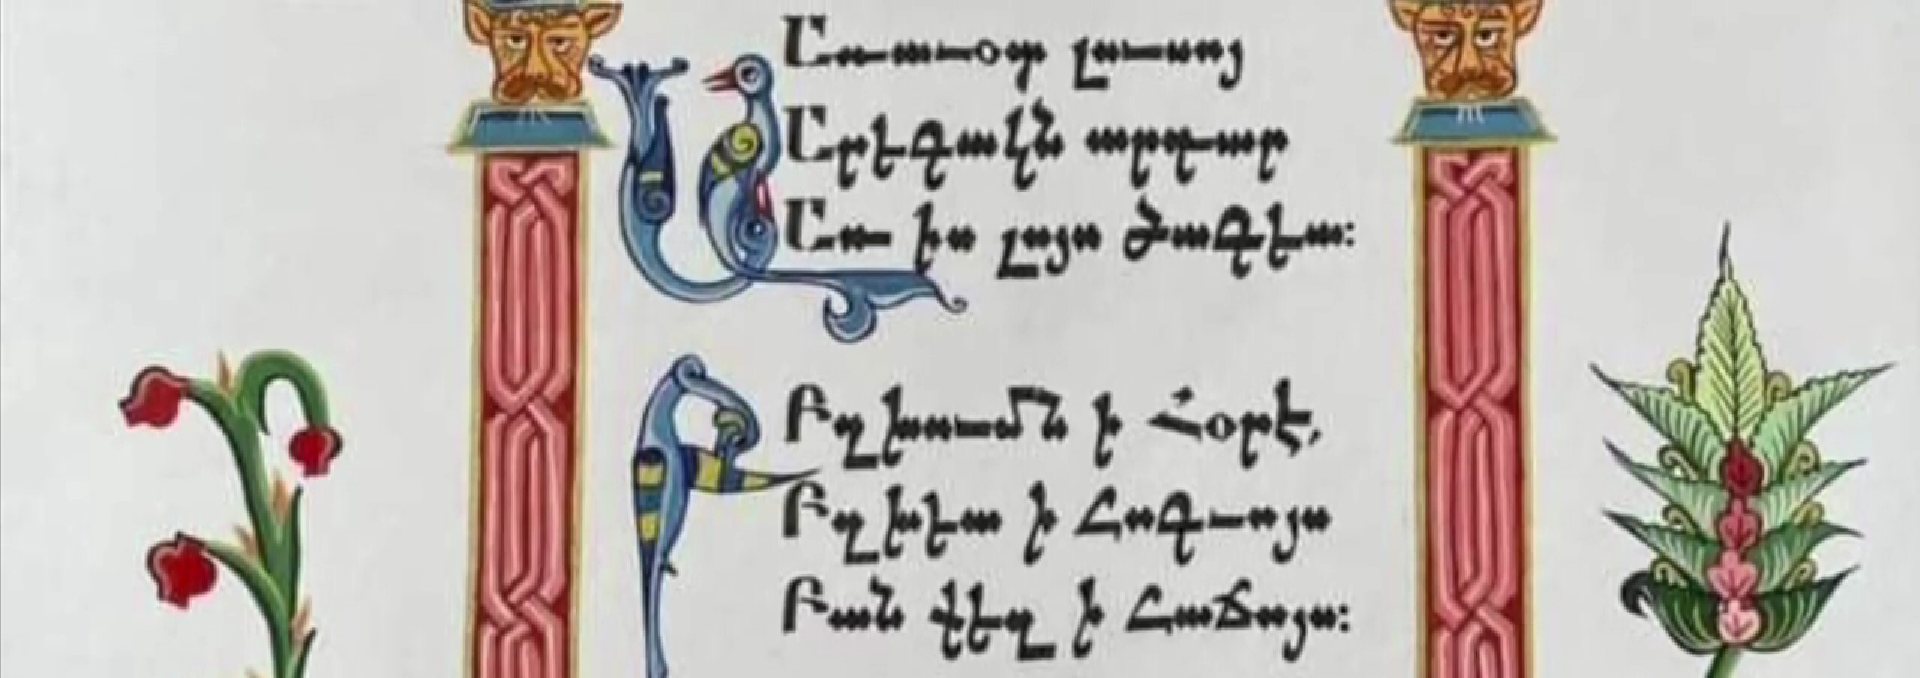 Առաւօտ լուսոյ
Արեգակն արդար
Առ իս լոյս ծագեա։
Բղխումն ի Հօրէ,
Բղխեա ի հոգւոյս
Բան քեզ ի հաճոյս։